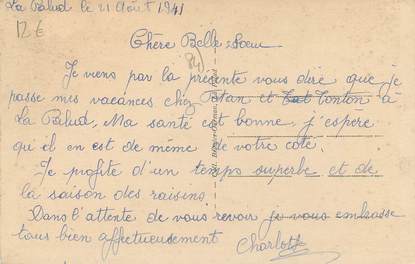 La Palud le 21 Août 1941
12 €
Chère Belle-Soeur
84
Je viens par la présente vous dire que je
passe mes vacances chez Tatan et Tonton à
La Palud. Ma santé est bonne, j'espère
qu'il en est de même de votre côté.
Je profite d'un temps superbe et de
la saison des raisins.
Dans l'attente de vous revoir je vous embrasse
tous bien affectueusement
Charlotte